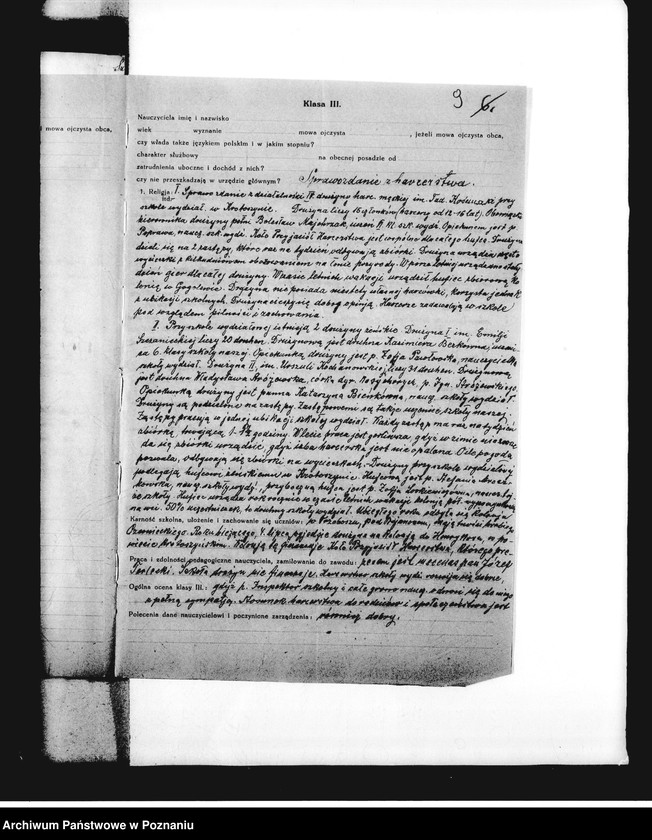 9 6.
Klasa III.
Nauczyciela imię i nazwisko
wiek wyznanie mowa ojczysta , jeżeli mowa ojczysta obca,
i mowa ojczysta obca,
czy włada także językiem polskim i w jakim stopniu?
charakter służbowy na obecnej posadzie od
zatrudnienia uboczne i dochód z nich?
czy nie przeszkadzają w urzędzie głównym? Sprawozdanie z harcerstwa.
1. Religja: I. Sprawozdanie z działalności IV drużyny harc. męskiej im. Tad. Kościuszki przy
szkole wydział. w Krotoszynie. Drużyna liczy 16 członków harcerzy od 12-16 lat. Obowiązki
kierownika drużyny pełni Bolesław Majchrzak, uczeń kl. VI. szk. wydz. Opiekunem jest p.
naucz. szk. wydz. Koło Przyjaciół Harcerstwa jest wspólne dla całego hufca. Drużyna
dzieli się na 2 zastępy, które raz na tydzień odbywają zbiórki. Drużyna urządza często
wycieczki z kilkudniowem obozowaniem na łonie przyrody. W porze letniej urządzono
dzień gier dla całej drużyny. W czasie letnich wakacji urządził hufiec zbiorową ko-
lonję w Gogolewie. Drużyna nie posiada niestety własnej harcówki, korzysta jednak
z ubikacji szkolnych. Drużyna cieszy się dobrą opinją. Harcerze zadawalają w szkole
pod względem pilności i zachowania.
I. Przy szkole wydziałowej istnieją 2 drużyny żeńskie. Drużyna I im. Emilji
Sczanieckiej liczy 20 druhen. Drużynową jest druhna Kazimiera uczenni-
ca 6. klasy szkoły naszej. Opiekunką drużyny jest p. Zofja Pawłowska, nauczycielka
szkoły wydział. Drużyna II. im. Urszuli Kochanowskiej liczy 31 druhen. Drużynową
jest druhna Władysława Stróżewska, córka dyr. p. Ign. Stróżewskiego.
Opiekunką drużyny jest panna Katarzyna naucz. szkoły wydział.
Drużyny są podzielone na zastępy. Zastępowemi są także uczenice szkoły naszej.
Zastępy pracują w jednej ubikacji szkoły wydział. Każdy zastęp ma raz na tydzień
zbiórkę, trwającą 1-1½ godziny. W lecie praca jest gorliwsza, gdyż w zimie nie zawsze
da się zbiórki urządzić, gdyż izba harcerska jest nie opalana. O ile pogoda
pozwala, odbywają się zbiórki na wycieczkach. Drużyny przy szkole wydziałowej
podlegają hufcowi żeńskiemu w Krotoszynie. Hufcową jest p. Stefanja
naucz. szkoły wydz., przyboczną hufca jest p. Zofja naucz. tej
że szkoły. Hufiec urządza rok rocznie w czasie letnich wakacji kolonję
na wsi. 50% uczestniczek, to druhny szkoły wydział. Ubiegłego roku odbyła się kolonja
Karność szkolna, ułożenie i zachowanie się uczniów: w pod majątku hrabiego
Czarnieckiego. Roku bieżącego, 4. lipca wyjedzie drużyna na kolonję do w po-
wiecie krotoszyńskim. Kolonję tę finansuje Koło Przyjaciół Harcerstwa, którego pre-
Praca i zdolności pedagogiczne nauczyciela, zamiłowanie do zawodu: zesem jest mecenas pan Józef
Szkoła drużyn nie finansuje. Harcerstwo szkoły wydz. rozwija się dobrze,
Ogólna ocena klasy III.: gdyż p. Inspektor szkolny i całe grono naucz. odnosi się do niego
z pełną sympatją. Stosunek harcerstwa do rodziców i społeczeństwa jest
Polecenia dane nauczycielowi i poczynione zarządzenia: również dobry.
Archiwum Państwowe w Poznaniu